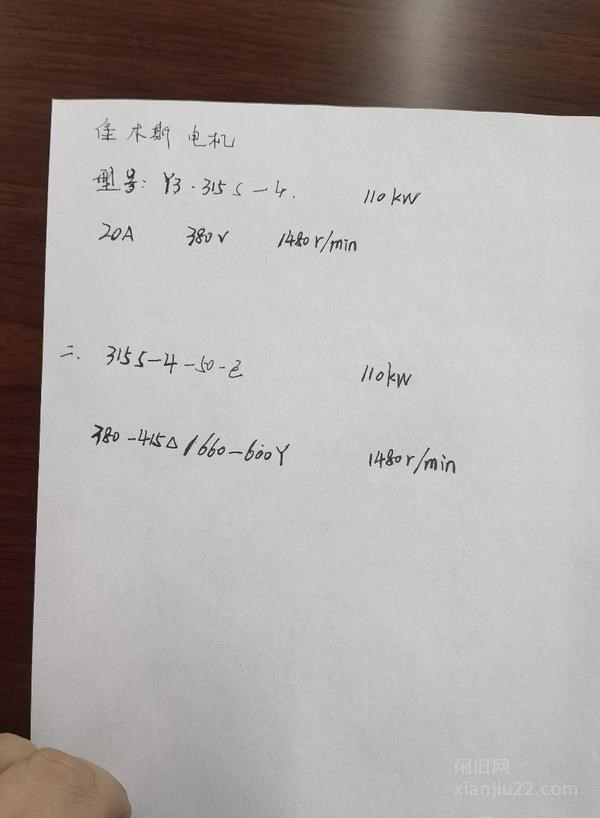 佳木斯电机
型号: Y3·315S-4. 110kW
20A 380V 1480r/min
二. 315S-4-50-2 110kW
380-415△/660-600Y 1480r/min
闲旧网
xianjiu22.com